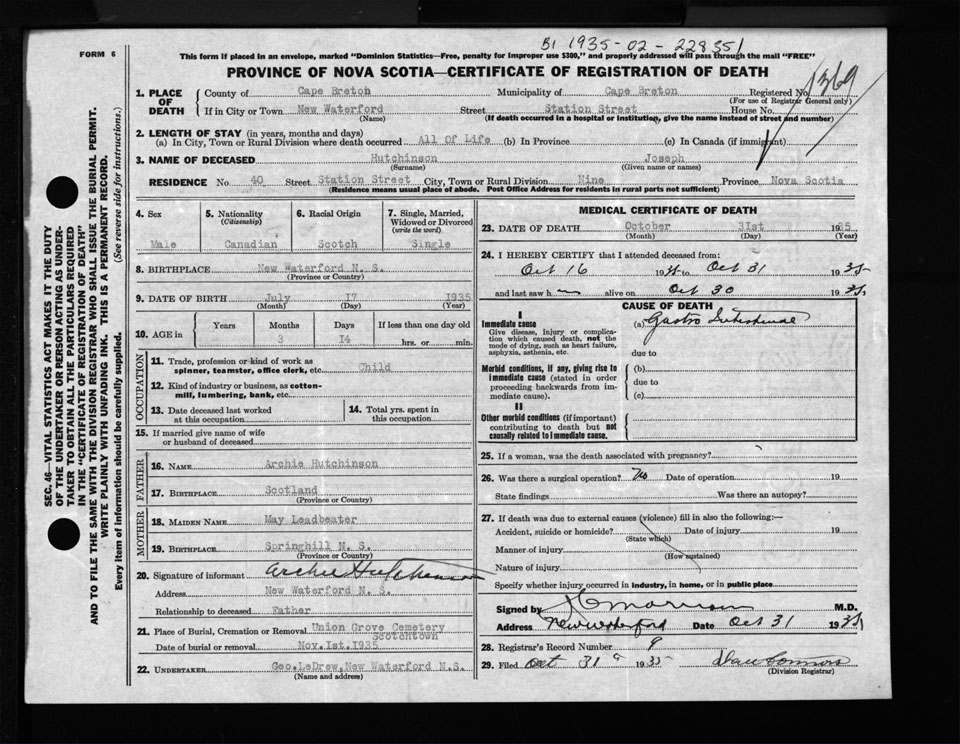 B1 1935-02-228351
FORM 6
This form if placed in an envelope, marked "Dominion Statistics—Free, penalty for improper use $300," and properly addressed will pass through the mail "FREE"
PROVINCE OF NOVA SCOTIA—CERTIFICATE OF REGISTRATION OF DEATH
1369
1. PLACE OF DEATH County of Cape Breton Municipality of Cape Breton Registered No.
(For use of Registrar General only)
If in City or Town New Waterford Street Station Street House No.
(Name) (If death occurred in a hospital or institution, give the name instead of street and number)
2. LENGTH OF STAY (in years, months and days)
(a) In City, Town or Rural Division where death occurred All Of Life (b) In Province (c) In Canada (if immigrant)
3. NAME OF DECEASED Hutchinson Joseph
(Surname) (Given name or names)
RESIDENCE No. 40 Street Station Street City, Town or Rural Division Nine Province Nova Scotia
(Residence means usual place of abode. Post Office Address for residents in rural parts not sufficient)
4. Sex 5. Nationality (Citizenship) 6. Racial Origin 7. Single, Married, Widowed or Divorced (write the word)
Male Canadian Scotch Single
8. BIRTHPLACE New Waterford N. S.
(Province or Country)
9. DATE OF BIRTH July 17 1935
(Month) (Day) (Year)
10. AGE in Years Months Days If less than one day old
3 14 hrs. or min.
OCCUPATION
11. Trade, profession or kind of work as spinner, teamster, office clerk, etc. Child
12. Kind of industry or business, as cotton-mill, lumbering, bank, etc.
13. Date deceased last worked at this occupation
14. Total yrs. spent in this occupation
15. If married give name of wife or husband of deceased
FATHER
16. NAME Archie Hutchinson
17. BIRTHPLACE Scotland
(Province or Country)
MOTHER
18. MAIDEN NAME May Leadbeater
19. BIRTHPLACE Springhill N. S.
(Province or Country)
20. Signature of informant Archie Hutchinson
Address New Waterford N. S.
Relationship to deceased Father
21. Place of Burial, Cremation or Removal Union Grove Cemetery
Scotchtown
Date of burial or removal Nov. 1st. 1935
22. UNDERTAKER Geo. LeDrew, New Waterford N.S.
(Name and address)
MEDICAL CERTIFICATE OF DEATH
23. DATE OF DEATH October 31st 1935
(Month) (Day) (Year)
24. I HEREBY CERTIFY that I attended deceased from:
Oct 16 1935 to Oct 31 1935
and last saw h im alive on Oct 30 1935
CAUSE OF DEATH
I
Immediate cause (a) Gastro Intestinal
Give disease, injury or complication which caused death, not the mode of dying, such as heart failure, asphyxia, asthenia, etc.
due to
Morbid conditions, if any, giving rise to immediate cause (stated in order proceeding backwards from immediate cause).
(b)
due to
(c)
II
Other morbid conditions (if important) contributing to death but not causally related to immediate cause.
25. If a woman, was the death associated with pregnancy?
26. Was there a surgical operation? No Date of operation 19
State findings Was there an autopsy?
27. If death was due to external causes (violence) fill in also the following:—
Accident, suicide or homicide? Date of injury 19
(State which)
Manner of injury
(How sustained)
Nature of injury
Specify whether injury occurred in industry, in home, or in public place
Signed by Morrison M.D.
Address New Waterford Date Oct 31 1935
28. Registrar's Record Number 9
29. Filed Oct 31 1935 Dan Connors
(Division Registrar)
SEC. 46—VITAL STATISTICS ACT MAKES IT THE DUTY
OF THE UNDERTAKER OR PERSON ACTING AS UNDER-
TAKER TO OBTAIN ALL THE PARTICULARS REQUIRED
IN THE "CERTIFICATE OF REGISTRATION OF DEATH"
AND TO FILE THE SAME WITH THE DIVISION REGISTRAR WHO SHALL ISSUE THE BURIAL PERMIT.
WRITE PLAINLY WITH UNFADING INK. THIS IS A PERMANENT RECORD.
Every item of information should be carefully supplied. (See reverse side for instructions.)